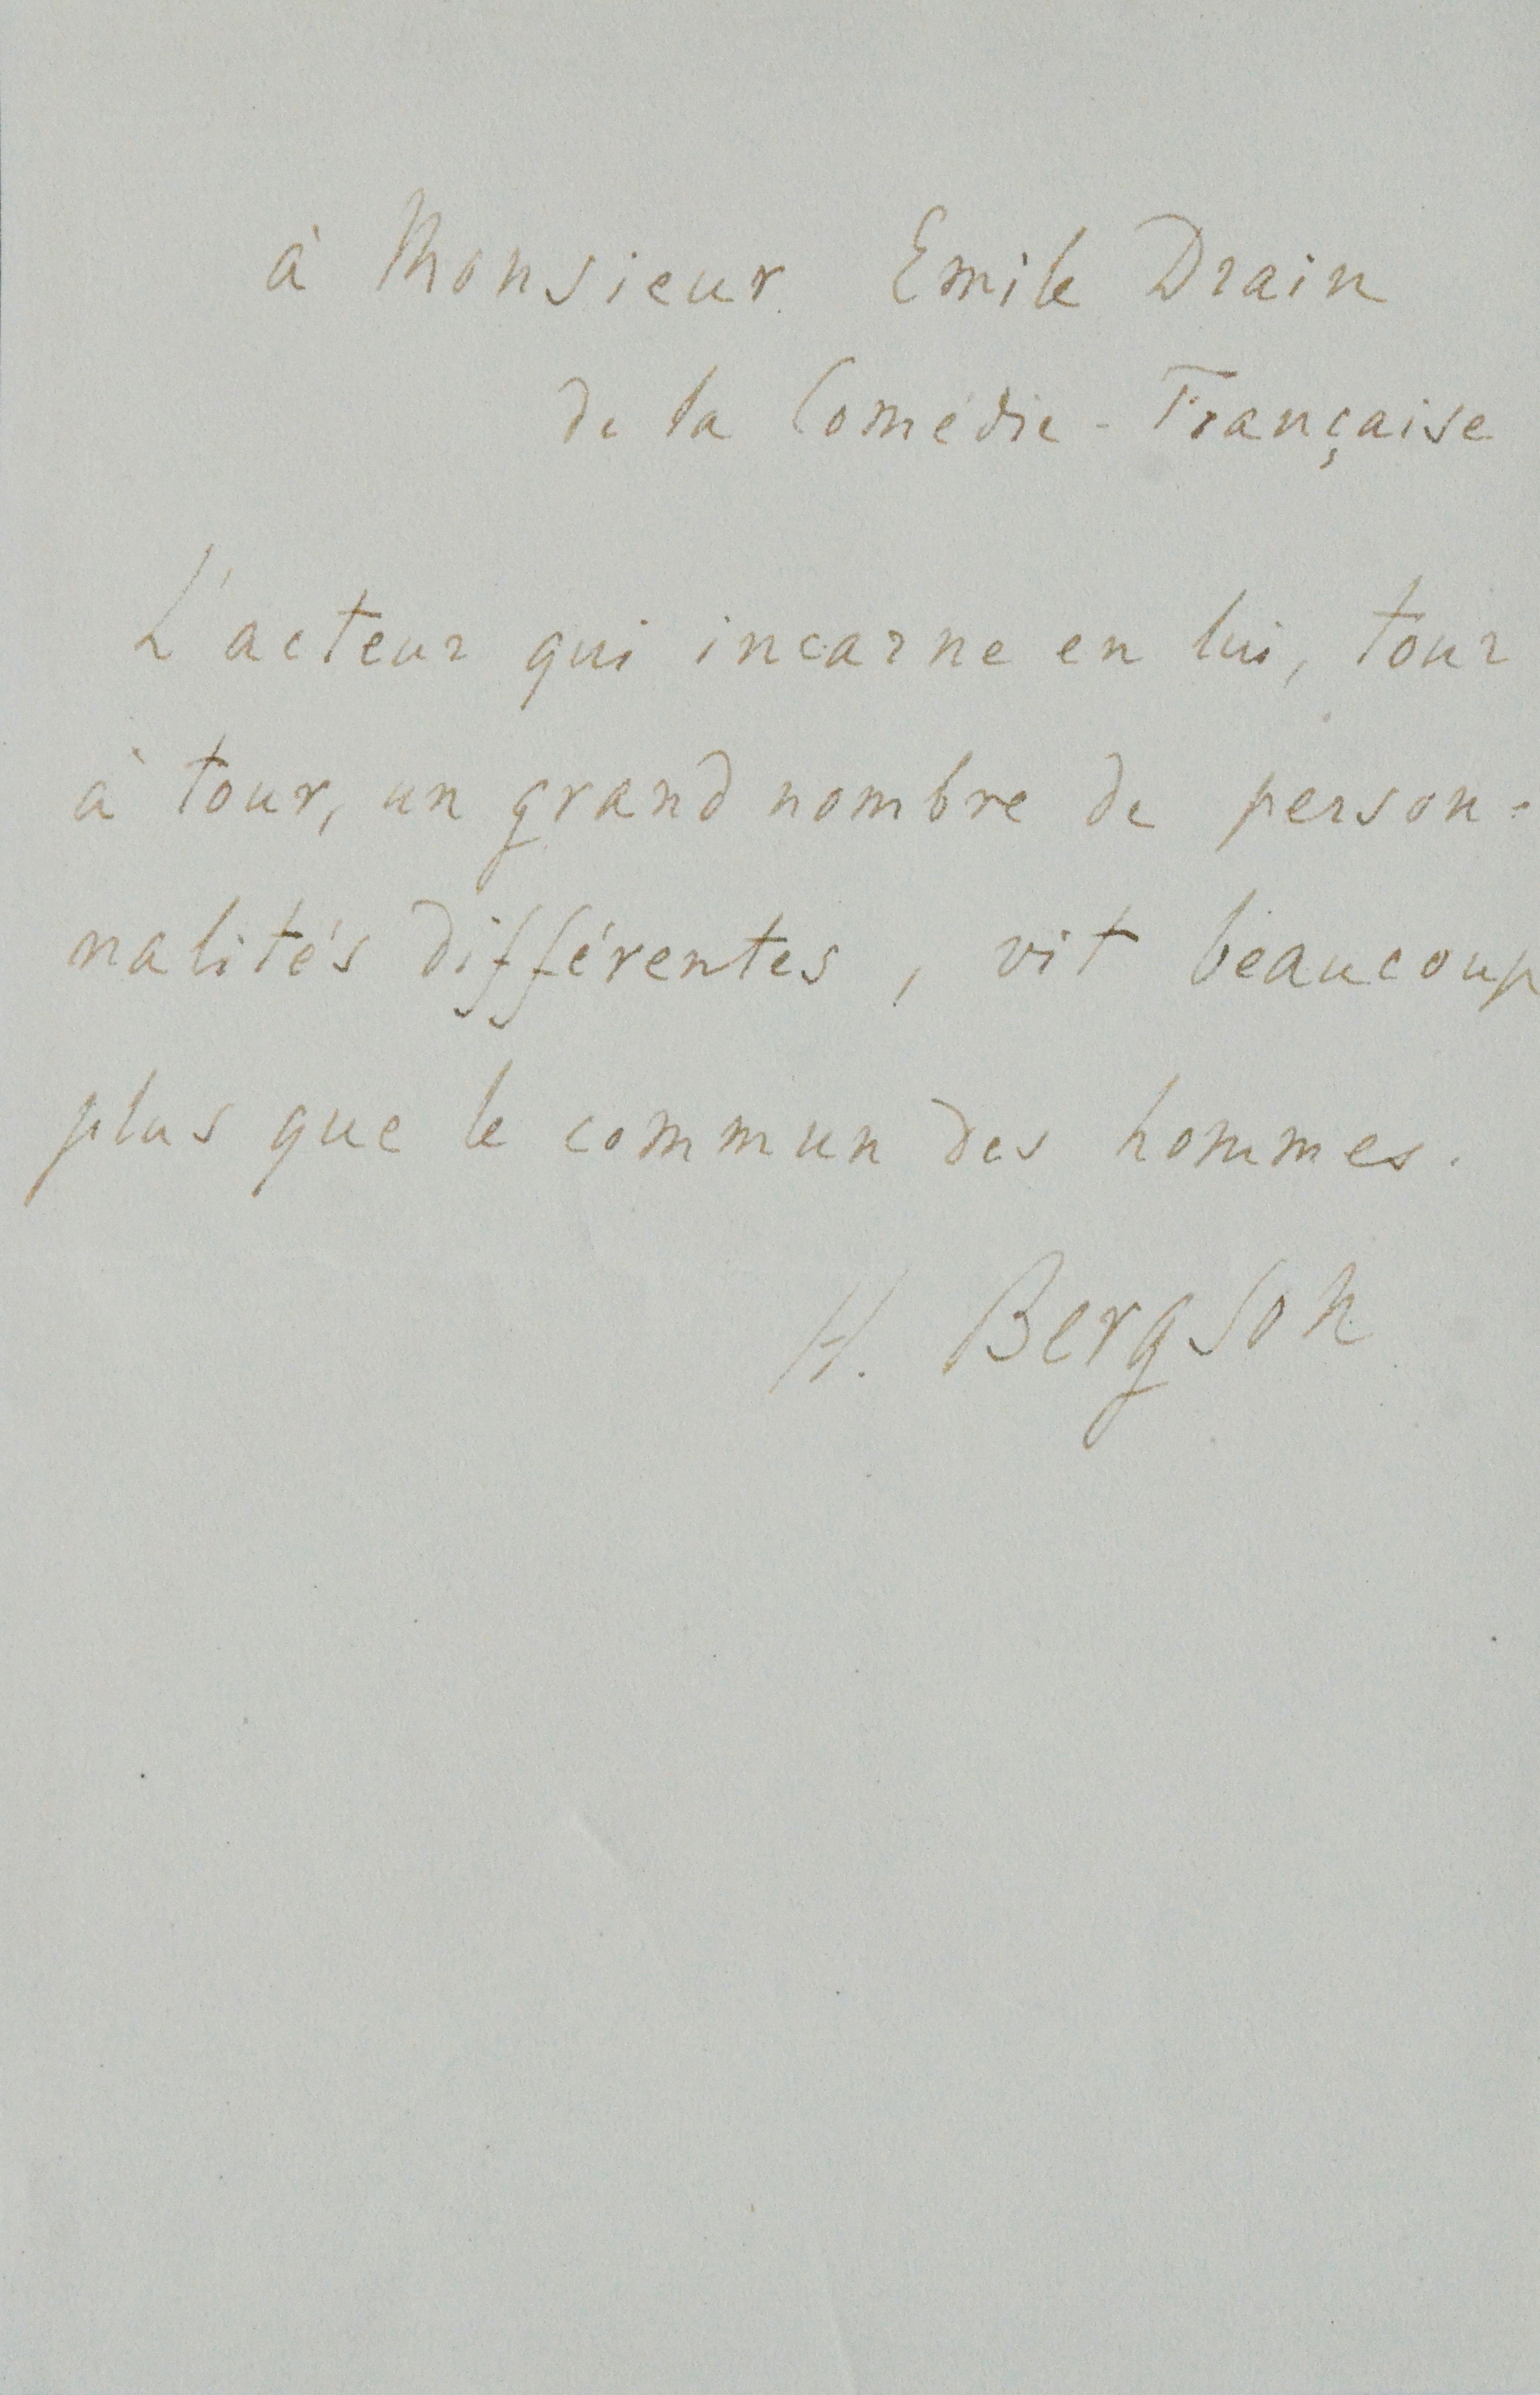 à Monsieur Emile Drain
de la Comédie-Française
L'acteur qui incarne en lui, tour
à tour, un grand nombre de person-
nalités différentes, vit beaucoup
plus que le commun des hommes.
H. Bergson